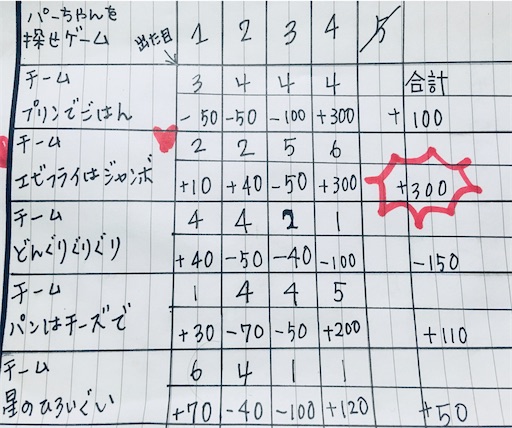 パーちゃんを
探せゲーム 出た目 1 2 3 4 5
チーム 3 4 4 4 合計
プリンでごはん -50 -50 -100 +300 +100
チーム 2 2 5 6
エビフライはジャンボ +10 +40 -50 +300 +300
チーム 4 4 2 1
どんぐりぐりぐり +40 -50 -40 -100 -150
チーム 1 4 4 5
パンはチーズで +30 -70 -50 +200 +110
チーム 6 4 1 1
星のひろいぐい +70 -40 -100 +120 +50